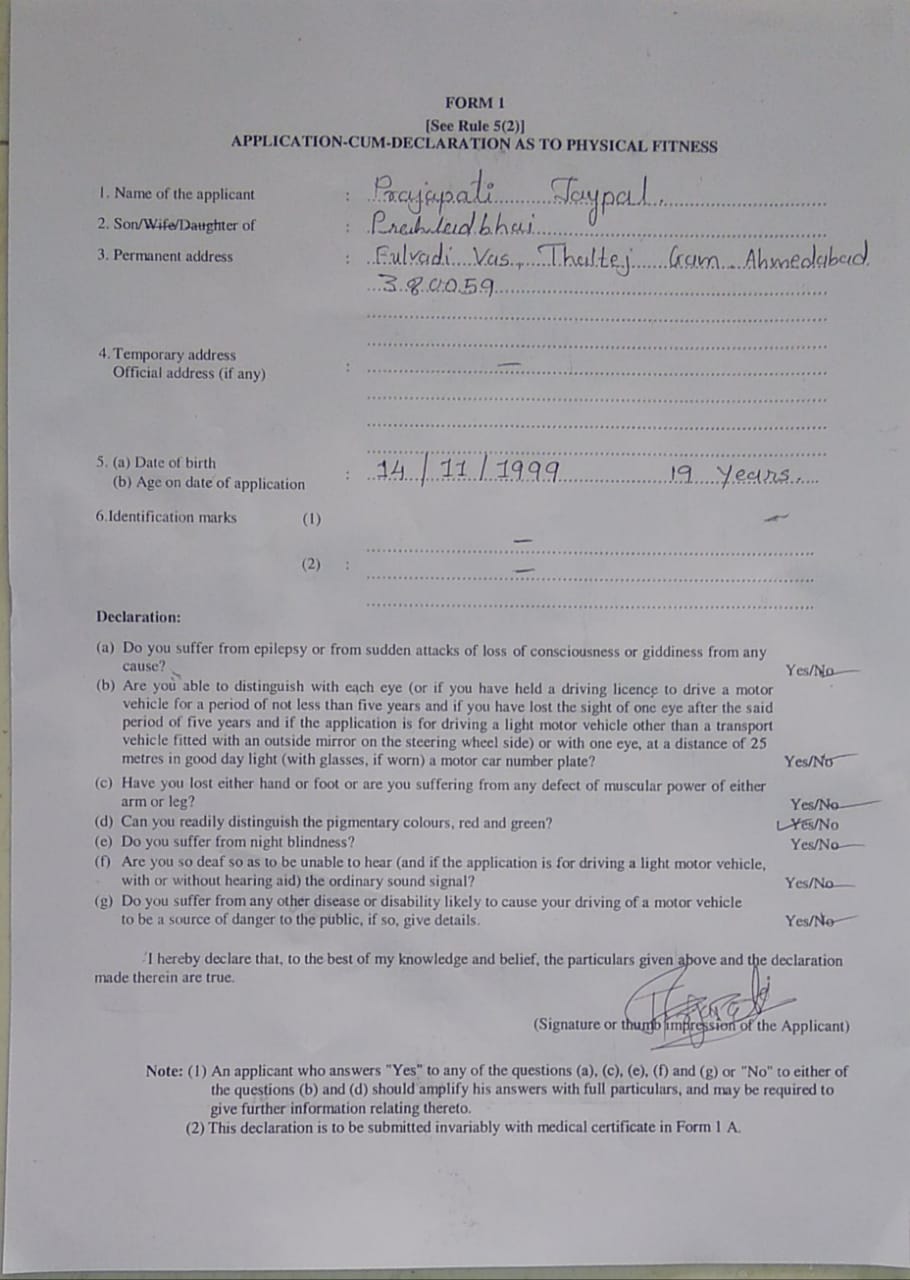 FORM 1
[See Rule 5(2)]
APPLICATION-CUM-DECLARATION AS TO PHYSICAL FITNESS
1. Name of the applicant : Prajapati Jaypal.
2. Son/Wife/Daughter of : Prahladbhai
3. Permanent address : Fulvadi Vas, Thaltej Gam Ahmedabad.
380059
4. Temporary address
Official address (if any) : —
5. (a) Date of birth
(b) Age on date of application : 14/11/1999 19 Years.
6.Identification marks (1) —
(2) : —
Declaration:
(a) Do you suffer from epilepsy or from sudden attacks of loss of consciousness or giddiness from any
cause? Yes/No
(b) Are you able to distinguish with each eye (or if you have held a driving licence to drive a motor
vehicle for a period of not less than five years and if you have lost the sight of one eye after the said
period of five years and if the application is for driving a light motor vehicle other than a transport
vehicle fitted with an outside mirror on the steering wheel side) or with one eye, at a distance of 25
metres in good day light (with glasses, if worn) a motor car number plate? Yes/No
(c) Have you lost either hand or foot or are you suffering from any defect of muscular power of either
arm or leg? Yes/No
(d) Can you readily distinguish the pigmentary colours, red and green? Yes/No
(e) Do you suffer from night blindness? Yes/No
(f) Are you so deaf so as to be unable to hear (and if the application is for driving a light motor vehicle,
with or without hearing aid) the ordinary sound signal? Yes/No
(g) Do you suffer from any other disease or disability likely to cause your driving of a motor vehicle
to be a source of danger to the public, if so, give details. Yes/No
I hereby declare that, to the best of my knowledge and belief, the particulars given above and the declaration
made therein are true.
(Signature or thumb impression of the Applicant)
Note: (1) An applicant who answers "Yes" to any of the questions (a), (c), (e), (f) and (g) or "No" to either of
the questions (b) and (d) should amplify his answers with full particulars, and may be required to
give further information relating thereto.
(2) This declaration is to be submitted invariably with medical certificate in Form 1 A.